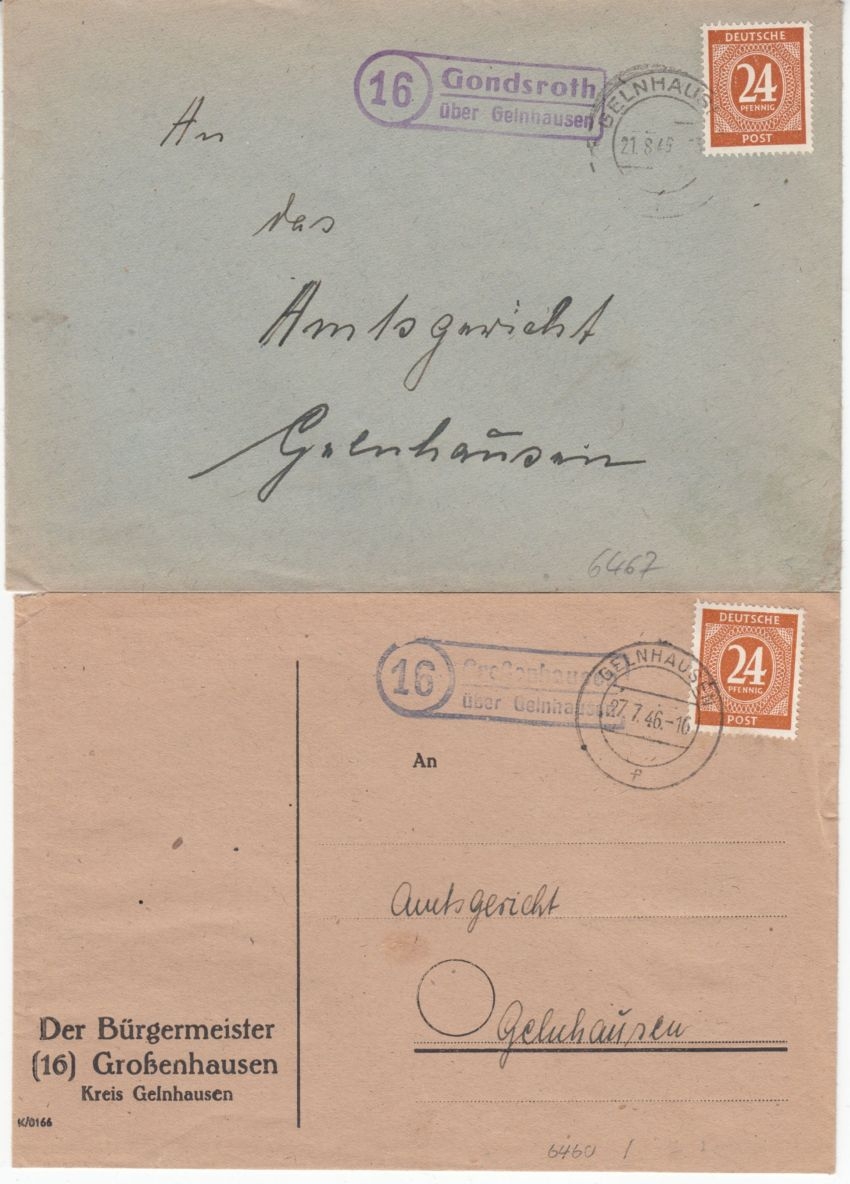 DEUTSCHE
24
PFENNIG
POST
16 Gondsroth
über Gelnhausen
GELNHAUS
21.8.46
An
das
Amtsgericht
Gelnhausen
6467
DEUTSCHE
24
PFENNIG
POST
16 Großenhausen
über Gelnhausen
GELNHAUSEN
27.7.46.-16
f
An
Amtsgericht
Gelnhausen
Der Bürgermeister
(16) Großenhausen
Kreis Gelnhausen
K/0166
6460 /